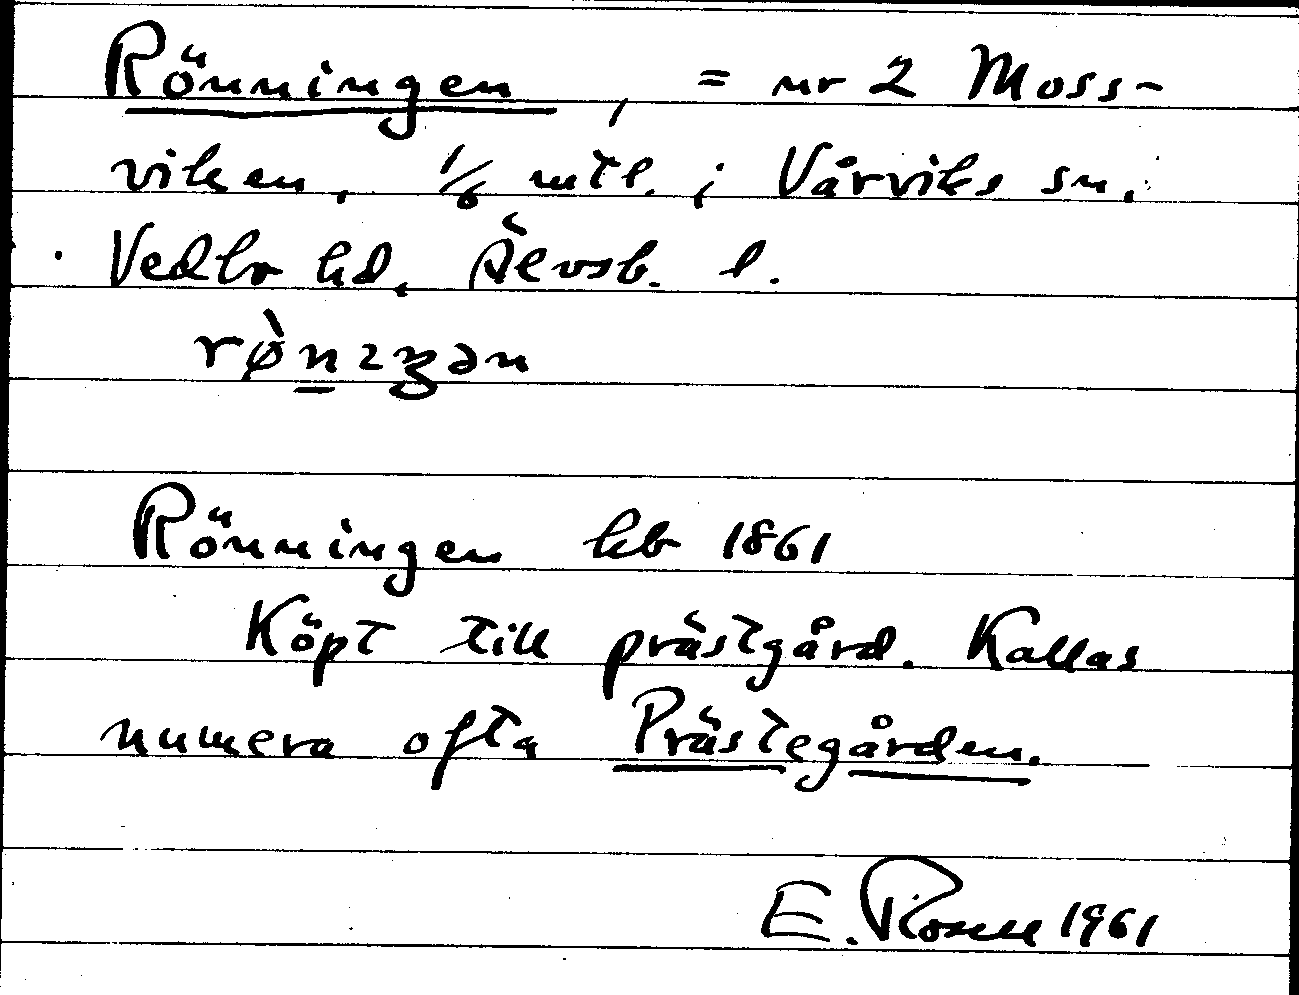 Rönningen, = nr 2 Moss-
viken, 1/6 mtl. i Vårviks sn.
Vedbo hd, Älvsb. l.
rø̀nıŋən
Rönningen kb 1861
Köpt till prästgård. Kallas
numera ofta Prästegården.
E. Rosell 1961